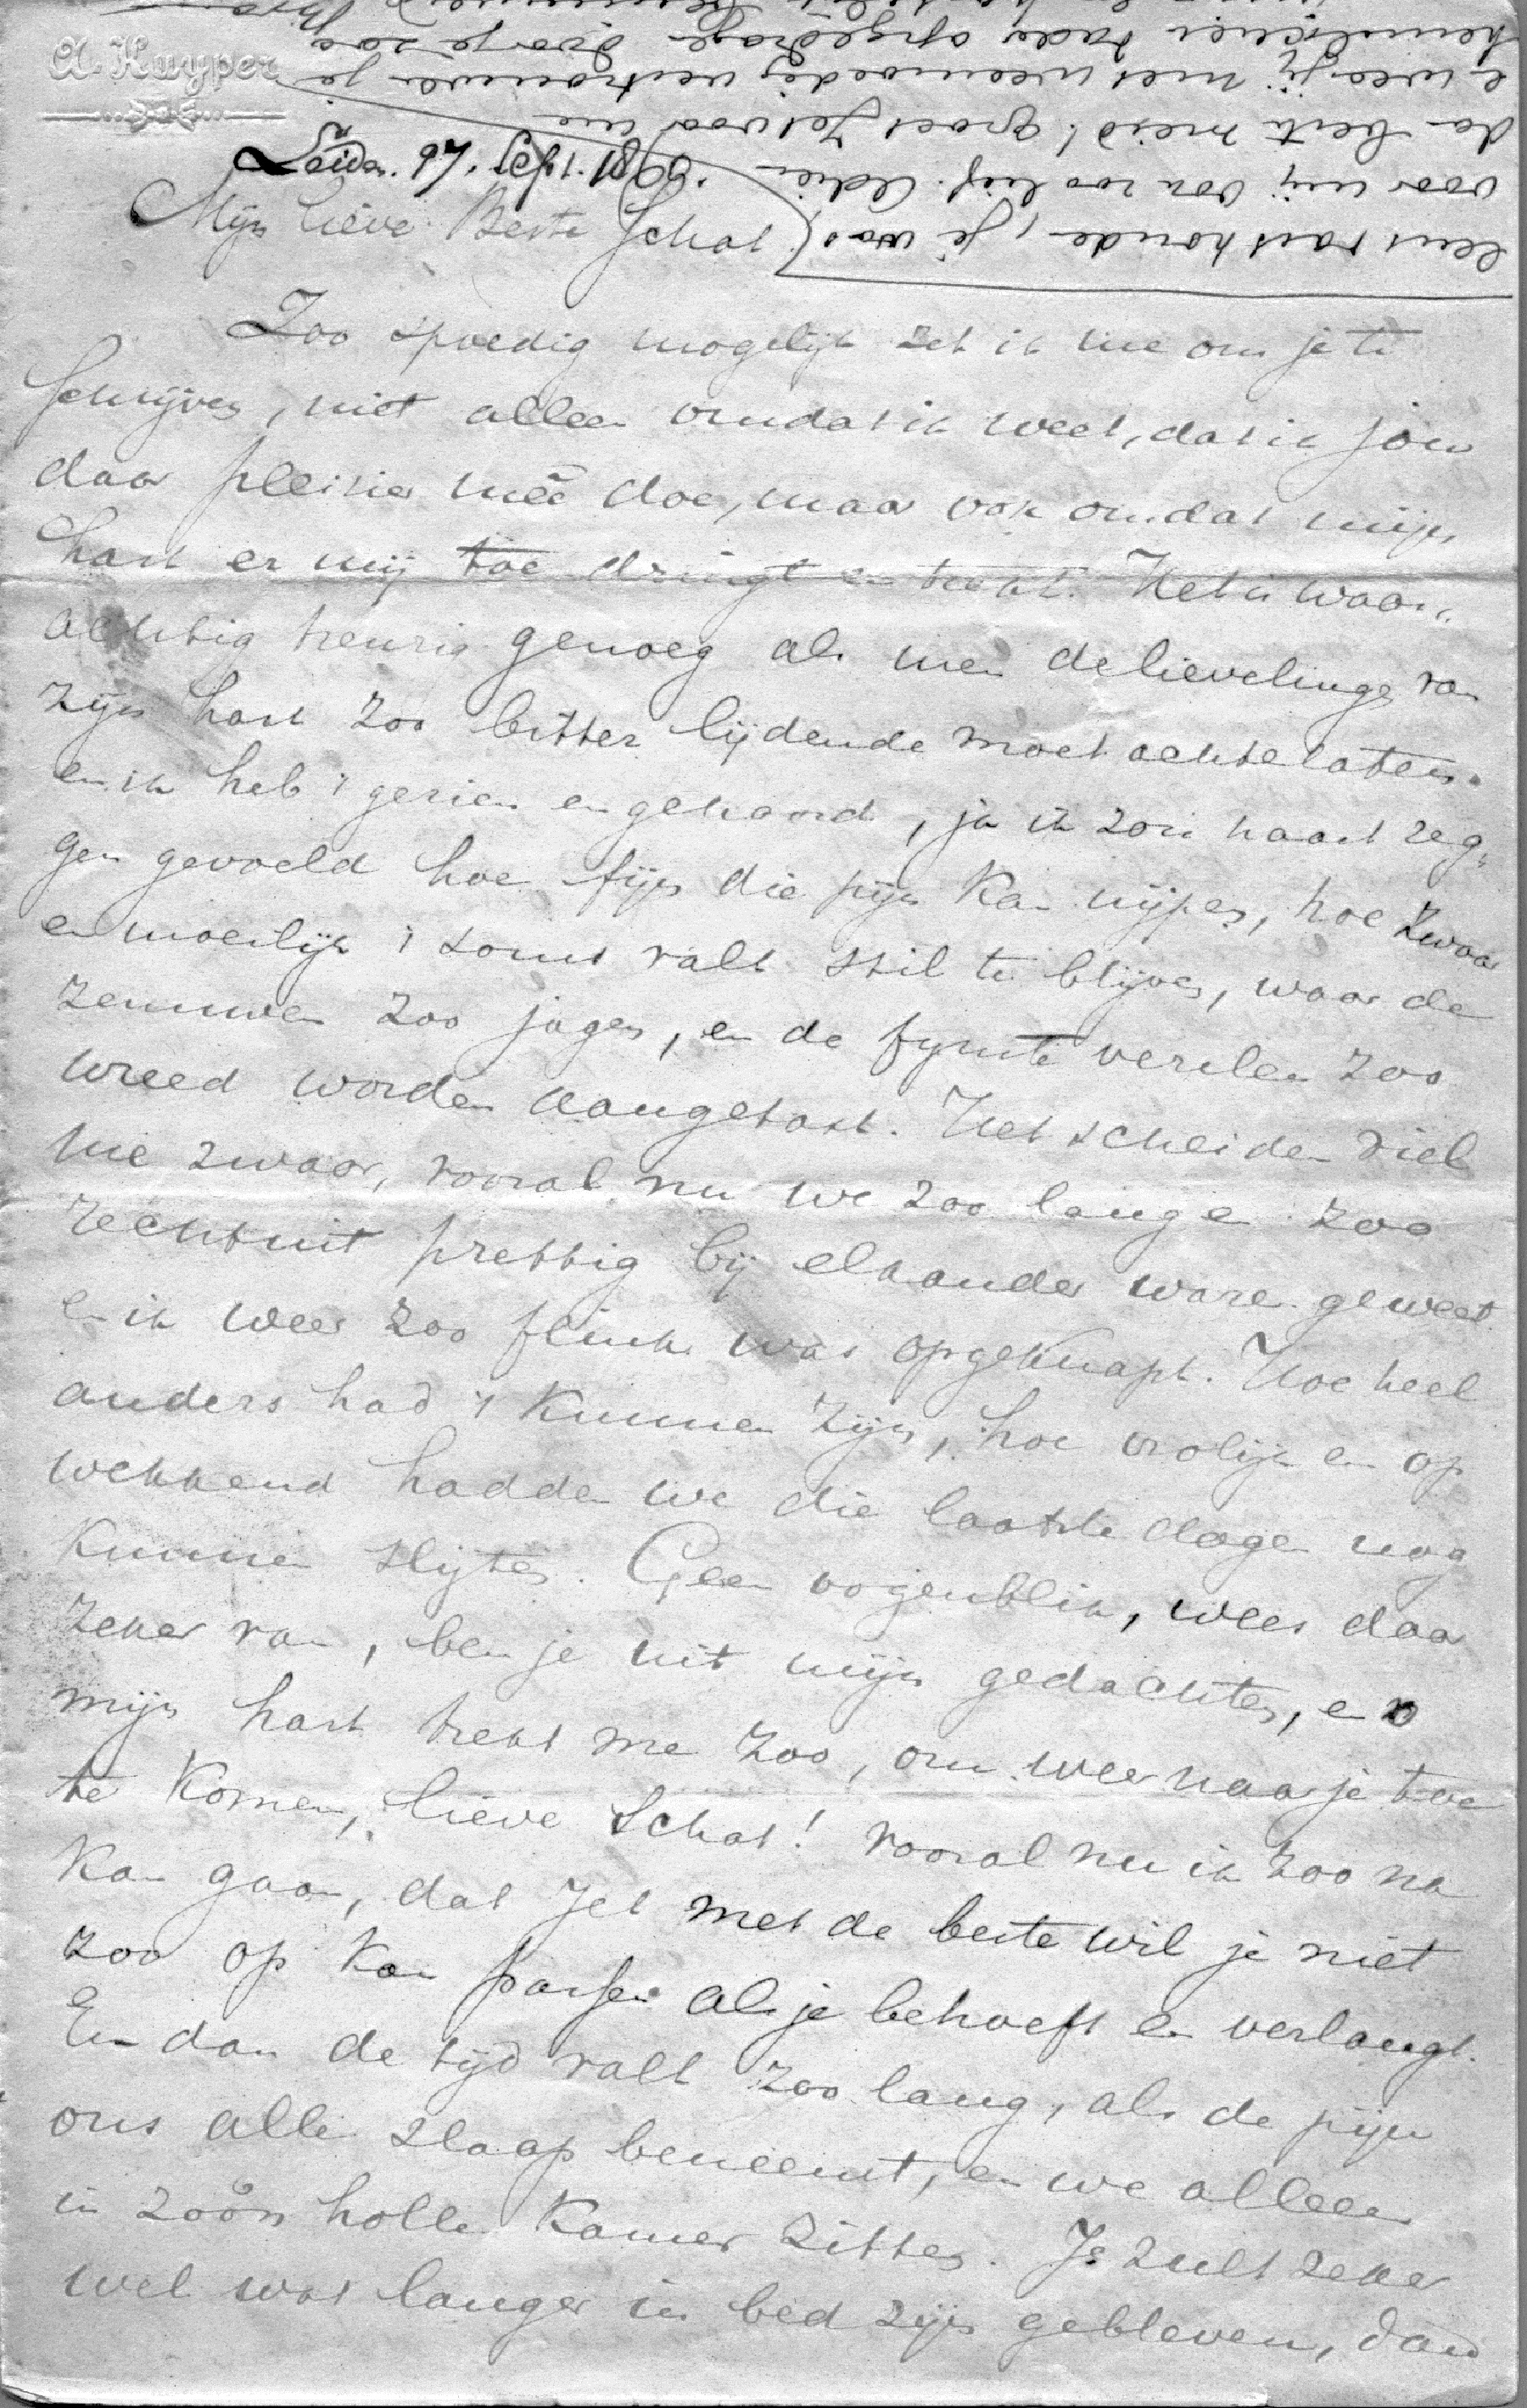 A. Kuyper
Leiden. 27. Sept. 1860.
Mijn lieve Beste Schat!
Zoo spoedig mogelijk zet ik me om je te
schrijven, niet alleen omdat ik weet, dat ik jou
daar pleisier meê doe, maar ook omdat mijn
hart er mij toe dringt en trekt. Het is waar„
achtig treurig genoeg als men de lievelinge van
zijn hart zoo bitter lijdende moet achterlaten.
en ik heb 't gezien en gehoord, ja ik zou haast zeg„
gen gevoeld hoe fijn die pijn kan nijpen, hoe zwaar
en moeilijk 't soms valt stil te blijven, waar de
zenuwen zoo jagen, en de fijnste vezelen zoo
wreed worden aangetast. Het scheiden viel
me zwaar, vooral nu we zoo lang en zoo
rechtuit prettig bij elkander waren geweest
en ik weer zoo flink was opgeknapt. Hoe heel
anders had 't kunnen zijn, hoe vrolijk en op
wekkend hadden we die laatste dagen nog
kunnen slijten. Geen oogenblik, wees daar
zeker van, ben je uit mijn gedachten, en
mijn hart trekt me zoo, om weer naar je toe
te komen, lieve schat! vooral nu ik zoo na
kan gaan, dat Jet met de beste wil je niet
zoo op kan passen als je behoeft en verlangt.
En dan de tijd valt zoo lang, als de pijn
ons alle slaap beneemt, en we alleen
in zoo'n holle kamer zitten. Je zult zeker
wel wat langer in bed zijn gebleven, dan
eens vasthouden, je was
voor mij ook zoo lief. Adieu
da beste meid! groet Jet voor me
en wees jij met weemoedig vertrouwen je
hemelschen vader opgedragen door je zoo